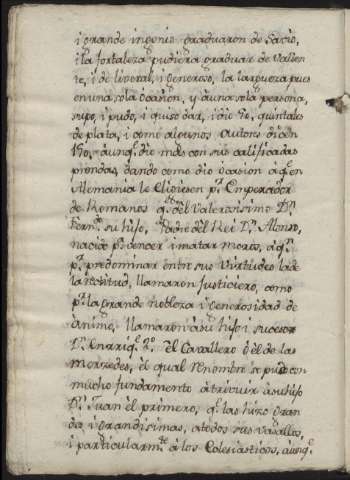 i grande ingenio graduaron de Sacio,
i la fortaleza pudiera graduar de Valien
te, i de liberal, i generoso, la largueza pues
en una sola ocasion, y áuna sola persona,
supo, i pudo, i quiso dar, i dio 70, quintales
de plata, i como algunos Autores dicen
150, áunq. dio mas con sus calificadas
prendas, dando como dio ocasion á q. en
Alemania le eligiesen pr. Emperador
de Romanos q. del Valerosisimo Dn.
Ferndo. su hijo, Padre del Rei Dn. Alonso,
nacido pa. vencer i matar moros, á q.n
pr. predominar entre sus Virtudes la de
la rectitud, llamaron Justiciero, como
pr. la grande nobleza i generosidad de
ánimo, llamaron á su hijo i sucesor
Dn. Enrriq. 2o. El Cavallero ó él de las
mercedes, el qual renombre se pudo con
mucho fundamento átrivuir á su hijo
Dn. Juan el primero, q. las hizo gran
des i grandisimas, á todos sus vasallos,
i particularmte. á los Eclesiasticos, áunq.